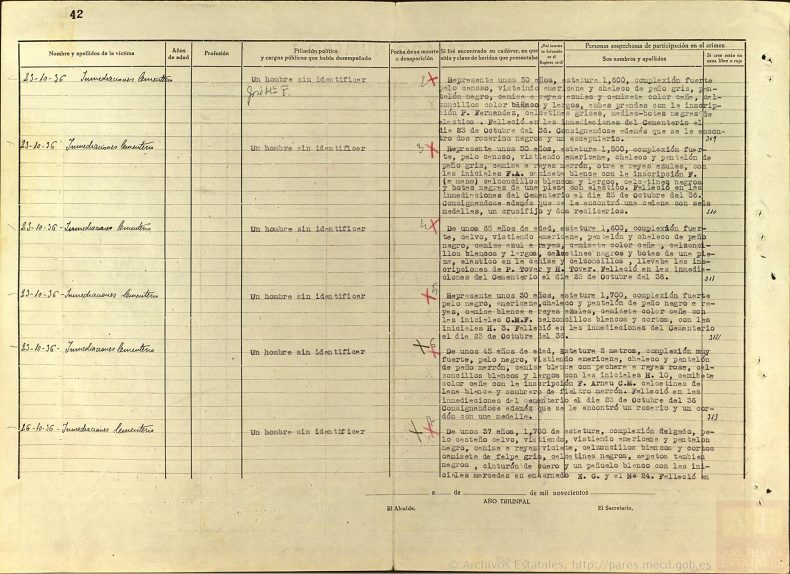 42
Nombre y apellidos de la víctima
Años de edad
Profesión
Filiación política y cargos públicos que había desempeñado
Fecha de su muerte o desaparición
Si fué encontrado su cadáver, en que sitio y clase de heridas que presentaba
Personas sospechosas de participación en el crimen
Sus nombres y apellidos
Si cree están en zona libre o roja
23-10-36 Inmediaciones Cementerio
Un hombre sin identificar
José Mª P.
2
Represente unos 50 años, estatura 1,600, complexión fuerte
pelo canoso, vistiendo americana y chaleco de paño gris, pan-
talón negro, camisa a rayas azules y camiseta color caña, cal-
zoncillos color blanco y largos, ambas prendas con la inscrip-
ción P. Fernandez, calcetines grises, medias-botas negras de
elastico . Falleció en las inmediaciones del Cementerio el
dia 23 de Octubre del 36. Consignandose además que se le encon-
tro dos rosarios negros y un escapulario.
309
23-10-36 - Inmediaciones Cementerio
Un hombre sin identificar
3
Represente unos 50 años, estatura 1,500, complexión fuer-
te, pelo canoso, vistiendo americana, chaleco y pantalón de
paño gris, camisa a rayas marrón, otra a rayas azules, con
las iniciales F.A. camiseta blanca con la inscripción F.
(a mano) calzoncillos blancos y largos, calcetines negros
y botas negras de una pieza con elastico. Falleció en las
inmediaciones del Cementerio el dia 23 de Octubre del 36.
Consignandose además que se le encontró una cadena con seis
medallas, un crucifijo y dos relicarios.
310
23-10-36 - Inmediaciones Cementerio
Un hombre sin identificar
4
De unos 65 años de edad, estatura 1,600, complexión fuer-
te, calvo, vistiendo americana, pantalón y chaleco de paño
negro, camisa azul a rayas, camiseta color caña , calzonci-
llos blancos y largos, calcetines negros y botas de una pie-
za, elastico en la camisa y calzoncillos , llevaba las ins-
cripciones de P. Tovar y H. Tovar. Falleció en las inmedia-
ciones del Cementerio el dia 23 de Octubre del 36.
311
23-10-36 - Inmediaciones Cementerio
Un hombre sin identificar
5
Represente unos 30 años, estatura 1,700, complexión fuerte
pelo negro, americana, chaleco y pantalón de paño negro a ra-
yas, camisa blanca a rayas azules, camiseta color caña con
las iniciales C.M.F. calzoncillos blancos y cortos, con las
iniciales H. 3. Falleció en las inmediaciones del Cementerio
el dia 23 de Octubre del 36.
312
23-10-36 - Inmediaciones Cementerio
Un hombre sin identificar
6
De unos 45 años de edad, Estatura 2 metros, complexión muy
fuerte, pelo negro, vistiendo americana, chaleco y pantalón
de paño marrón, camisa blanca con pechera a rayas rosa, cal-
zoncillos blancos y largos con las iniciales H. 10, camiseta
color caña con la inscripción F. Arnau C.M. calcetines de
lana blanca y sombrero de fieltro marrón. Falleció en las
inmediaciones del cementerio el dia 23 de Octubre del 36
Consignandose además que se le encontró un rosario y un cor-
dón con una medalla.
313
26-10-36 - Inmediaciones Cementerio
Un hombre sin identificar
De unos 37 años, 1,700 de estatura, complexión delgado, pe-
lo castaño calvo, vistiendo, vistiendo americana y pantalon
negro, camisa a rayas violeta, calzoncillos blancos y cortos
camiseta de felpa gris, calcetines negros, zapatos tambien
negros , cinturón de cuero y un pañuelo blanco con las ini-
ciales marcadas en encarnado E. G. y el Nº 24. Falleció en
a de de mil novecientos
AÑO TRIUNFAL
El Alcalde,
El Secretario,
© Archivos Estatales, http://pares.mecd.gob.es
ARCHIVOS
ESTATALES